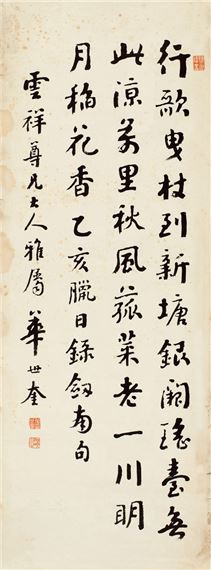 行歌曳杖到新塘銀闕瑤臺無
此涼萬里秋風菰菜老一川明
月稻花香乙亥臘日錄劍南句
雲祥尊兄大人雅屬 華世奎